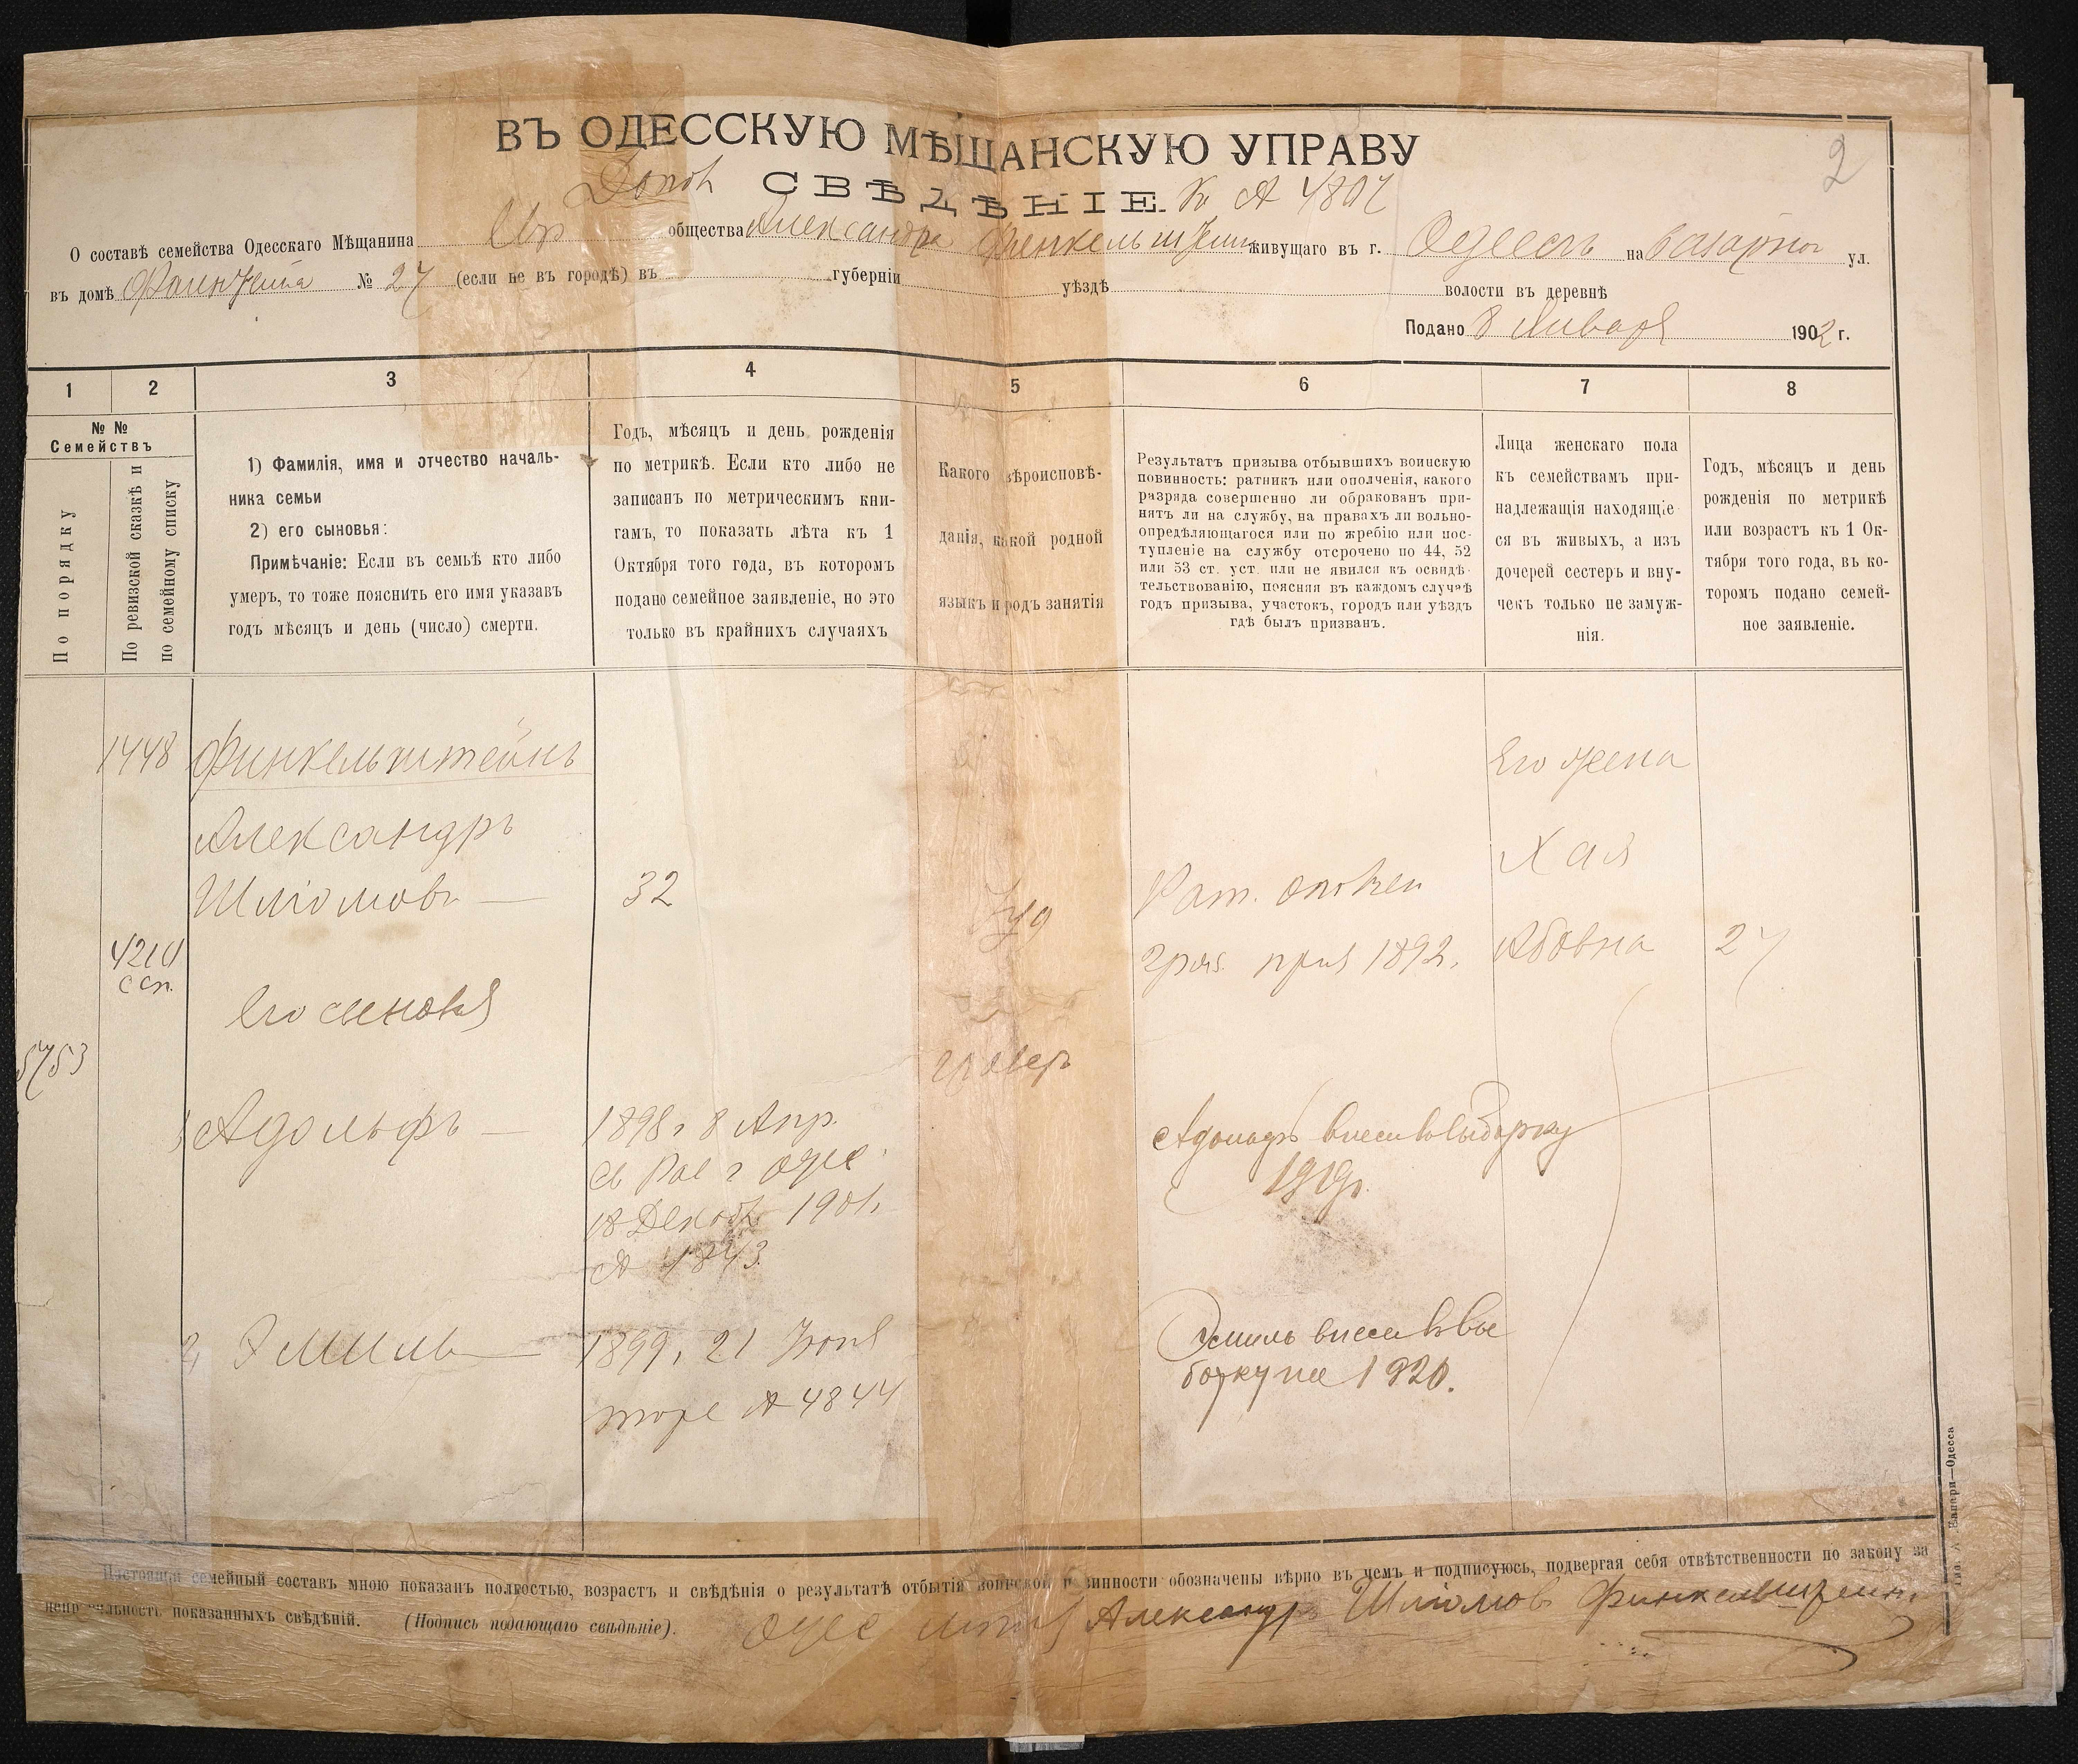 2
ВЪ ОДЕССКУЮ МѢЩАНСКУЮ УПРАВУ
Допол СВѢДѢНІЕ. К № 4807
О составѣ семейства Одесскаго Мѣщанина Евр общества Александра Финкельштейн живущаго въ г. Одессѣ на Базарной ул.
въ домѣ № 27 (если не въ городѣ) въ губерніи уѣздѣ волости въ деревнѣ
Подано 8 Января 1902 г.
1 2 3 4 5 6 7 8
№ №
Семействъ
По порядку
По ревизской сказкѣ и
по семейному списку
1) Фамилія, имя и отчество началь-
ника семьи
2) его сыновья:
Примѣчаніе: Если въ семьѣ кто либо
умеръ, то тоже пояснить его имя указавъ
годъ мѣсяцъ и день (число) смерти.
Годъ, мѣсяцъ и день рожденія
по метрикѣ. Если кто либо не
записанъ по метрическимъ кни-
гамъ, то показать лѣта къ 1
Октября того года, въ которомъ
подано семейное заявленіе, но это
только въ крайнихъ случаяхъ
Какого вѣроисповѣ-
данія, какой родной
языкъ и родъ занятія
Результатъ призыва отбывшихъ воинскую
повинность: ратникъ или ополченія, какого
разряда совершенно ли обракованъ при-
нятъ ли на службу, на правахъ ли вольно-
опредѣляющагося или по жребію или пос-
тупленіе на службу отсрочено по 44, 52
или 53 ст. уст. или не явился къ освидѣ-
тельствованію, поясняя въ каждомъ случаѣ
годъ призыва, участокъ, городъ или уѣздъ
гдѣ былъ призванъ.
Лица женскаго пола
къ семействамъ при-
надлежащія находящіе-
ся въ живыхъ, а изъ
дочерей сестеръ и вну-
чекъ только не замуж-
нія.
Годъ, мѣсяцъ и день
рожденія по метрикѣ
или возрастъ къ 1 Ок-
тября того года, въ ко-
торомъ подано семей-
ное заявленіе.
1448 Финкельштейнъ
Александръ
Шліомовъ — 32
4214
ссп.
Іуд
Рат. ополчен
приз 1892.
Его жена
Хая
Абовна 27
Его сыновья
5753
граверъ
1 Адольфъ — 1898, 8 Апр.
св Рав г Одес.
18 Декабр 1901
№ 4843
Адольфъ внесен въ выборку
1919г.
2, Эмиль — 1899, 21 Іюня
тоже № 4844
Эмиль внесен въ вы
борку на 1920.
Настоящій семейный составъ мною показанъ полностью, возрастъ и свѣдѣнія о результатѣ отбытія воинской повинности обозначены вѣрно въ чемъ и подписуюсь, подвергая себя отвѣтственности по закону за
неправильность показанныхъ свѣдѣній. (Подпись подающаго свѣдѣніе). Одес Александръ Шліомовъ Финкельштейнъ